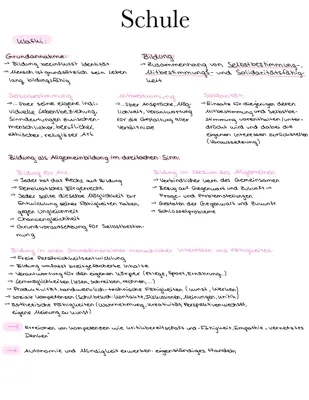 Schule
Klafki:
Grundannahme:
→ Bildung beeinflusst Identität
→ Mensch ist grundsätzlich sein Leben
lang bildungsfähig
Bildung:
→ Zusammenhang von Selbstbestimmung-,
Mitbestimmungs- und Solidaritätsfähig-
keit
Selbstbestimmung
→ über seine eigene indi-
viduelle Lebensbeziehung,
Sinndeutungen zwischen-
menschlicher, beruflicher,
ethischer, religiöser Art
Mitbestimmung
→ über Ansprüche, Mög-
lichkeit, Verantwortung
für die Gestaltung aller
Verhältnisse
Solidarität
→ Einsatz für diejenigen deren
Mitbestimmung und Selbstbe-
stimmung vorenthalten / unter-
drückt wird und dabei die
eigenen Interessen zurückstellt
(Voraussetzung)
Bildung als Allgemeinbildung im dreifachen Sinn:
Bildung für Alle
→ Jeder hat das Recht auf Bildung
→ Demokratisches Bürgerrecht
→ Jeder sollte dieselbe Möglichkeit zur
Entwicklung seiner Fähigkeiten haben
gegen Ungleichheit
→ Chancengleichheit
→ Grundvoraussetzung für Selbstbestim-
mung
Bildung im Medium des Allgemeinen
→ Verbindlicher Kern des Gemeinsamen
→ Bezug auf Gegenwart und Zukunft →
Frage- und Problemstellungen
→ Gestalten der Gegenwart und Zukunft
→ Schlüsselprobleme
Bildung in allen Grunddimensionen menschlicher Interessen und Fähigkeiten
→ Freie Persönlichkeitsentwicklung
→ Bildung umfasst breitgefächerte Inhalte
→ Verantwortung für den eigenen Körper (Pflege, Sport, Ernährung..)
→ Lernmöglichkeiten (lesen, schreiben, rechnen,..)
→ Produktivität, handwerklich-technische Fähigkeiten (Kunst, Werken)
→ soziale Kompetenzen (Schulbesuch, Kontakte, Diskussionen, Meinungen, Kritik)
→ Ästhetische Fähigkeiten (Wahrnehmung, Kreativität, Perspektivenwechsel,
eigene Meinung zu Kunst)
→ Erreichen von Kompetenzen wie Kritikbereitschaft und -fähigkeit, Empathie, vernetztes
Denken
→ Autonomie und Mündigkeit erwerben eigenständiges Handeln